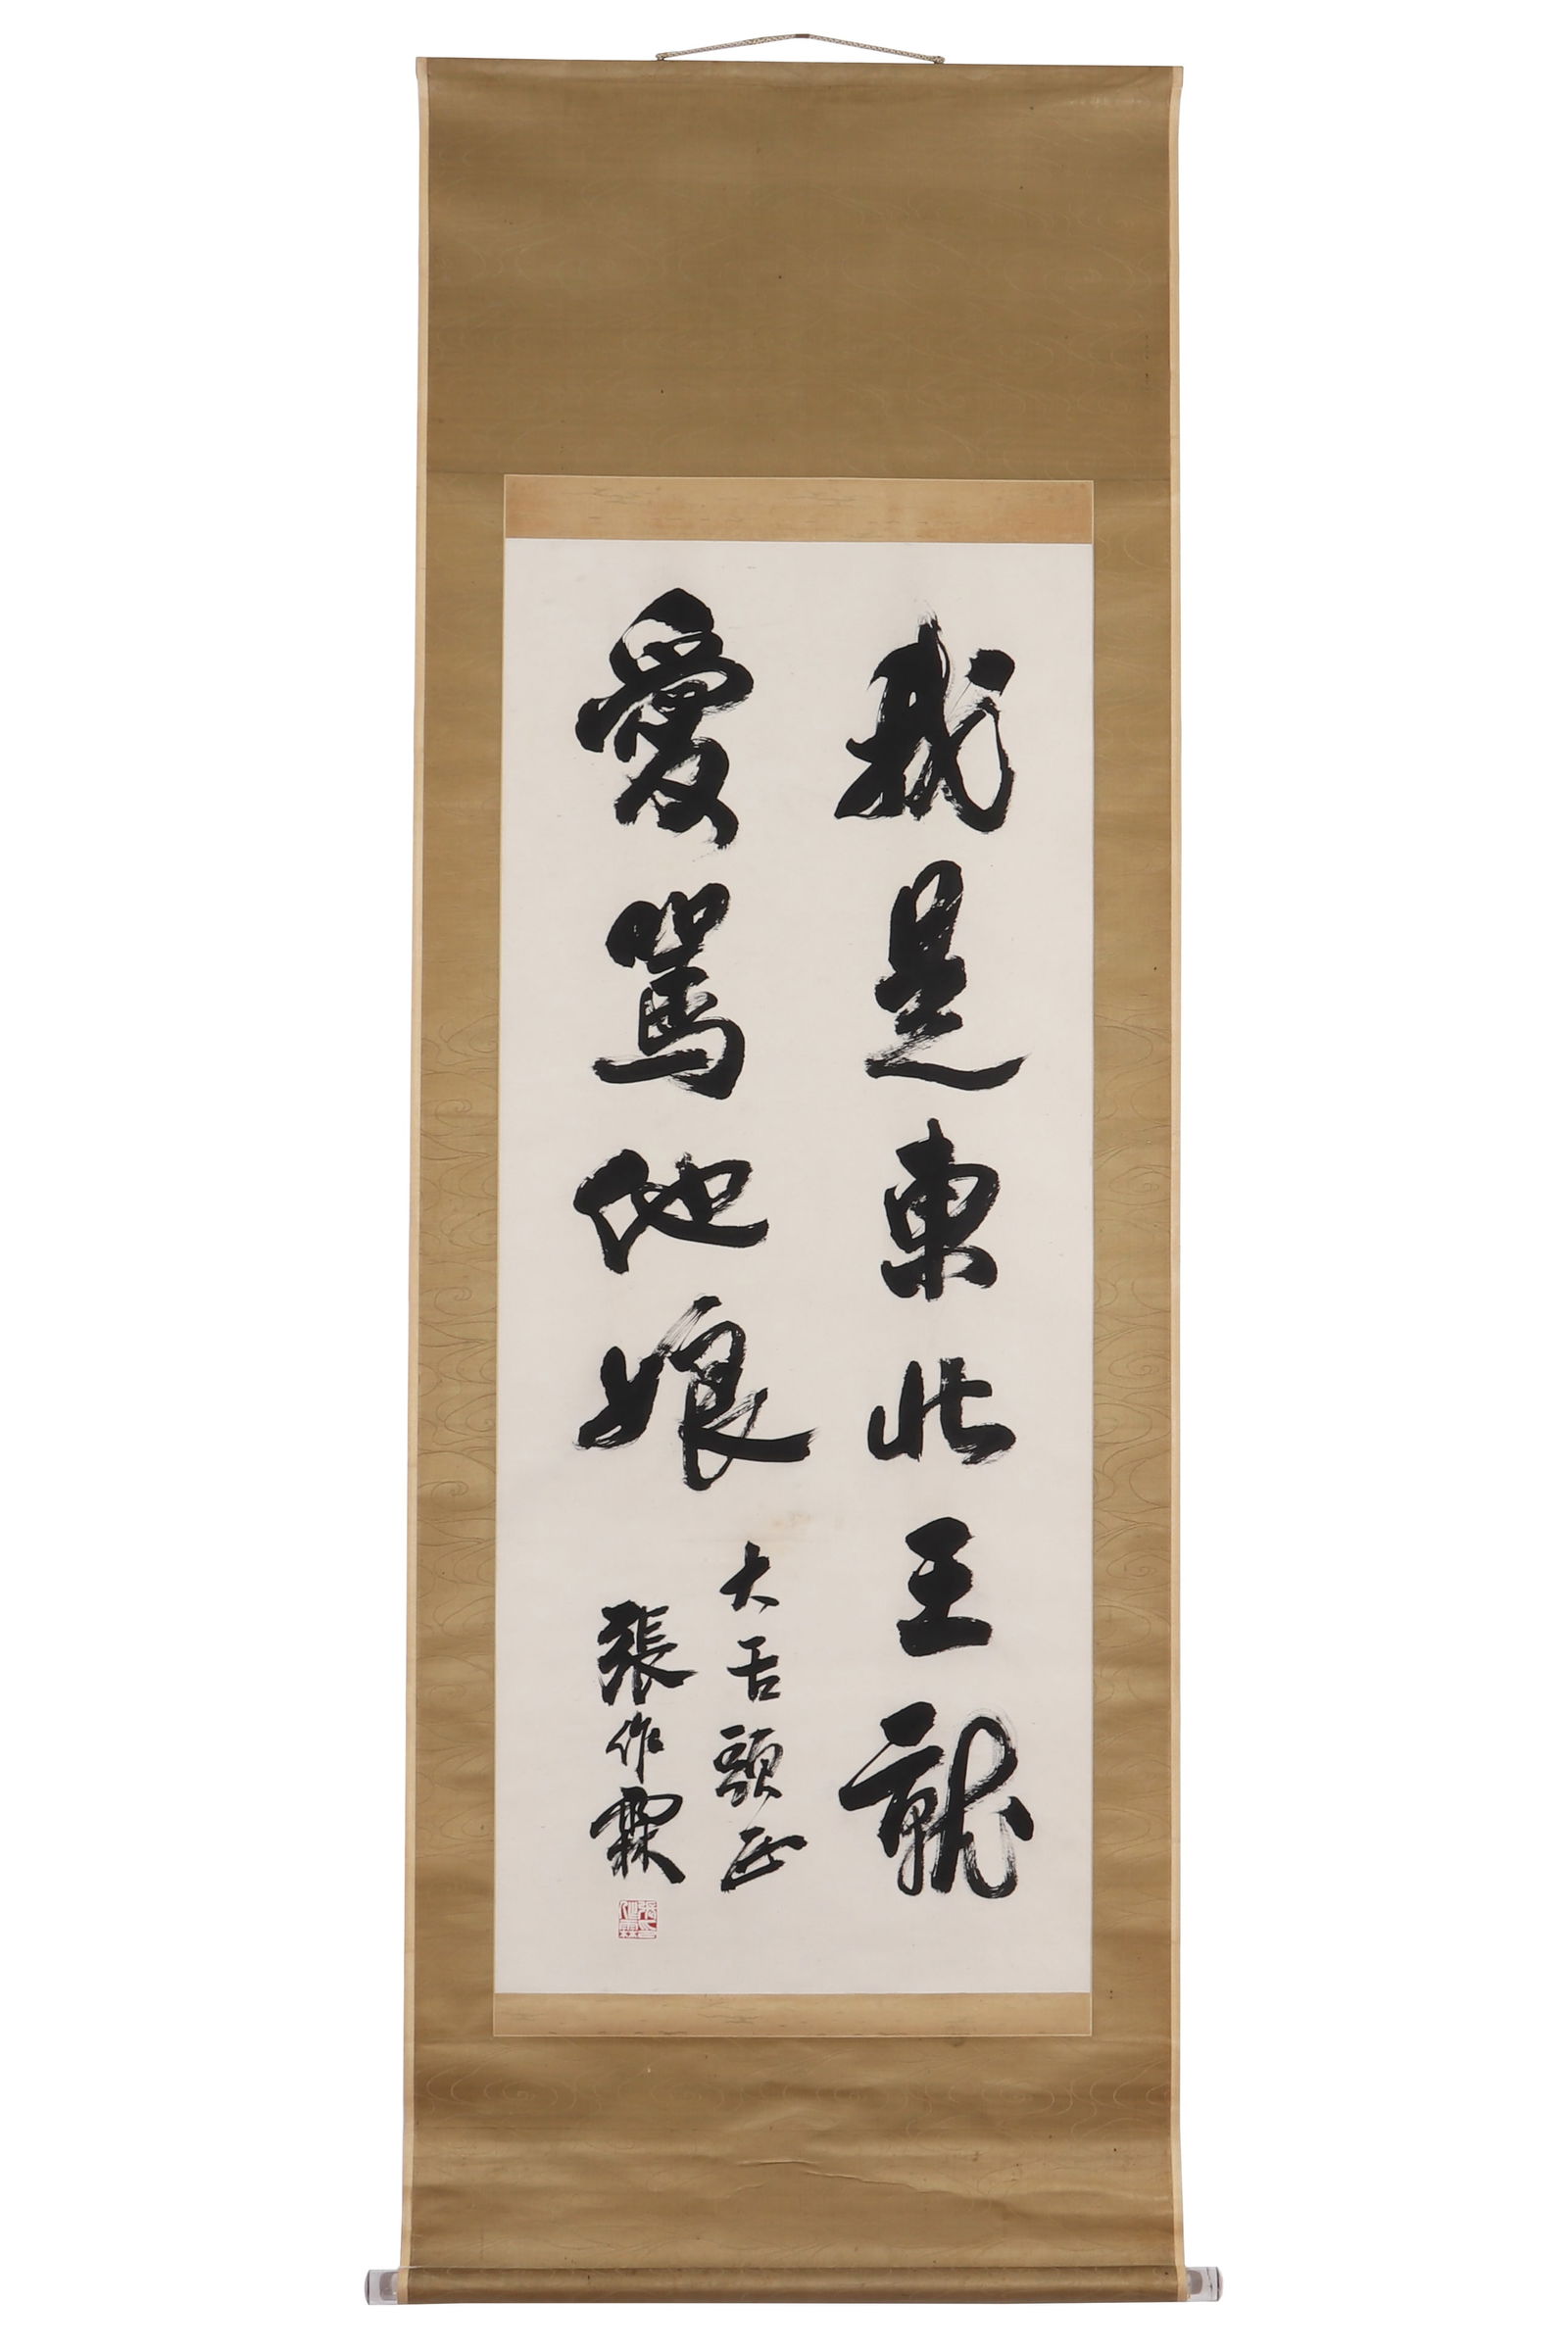 我是東北王就
愛罵他娘
大舌頭正
張作霖
張作霖印